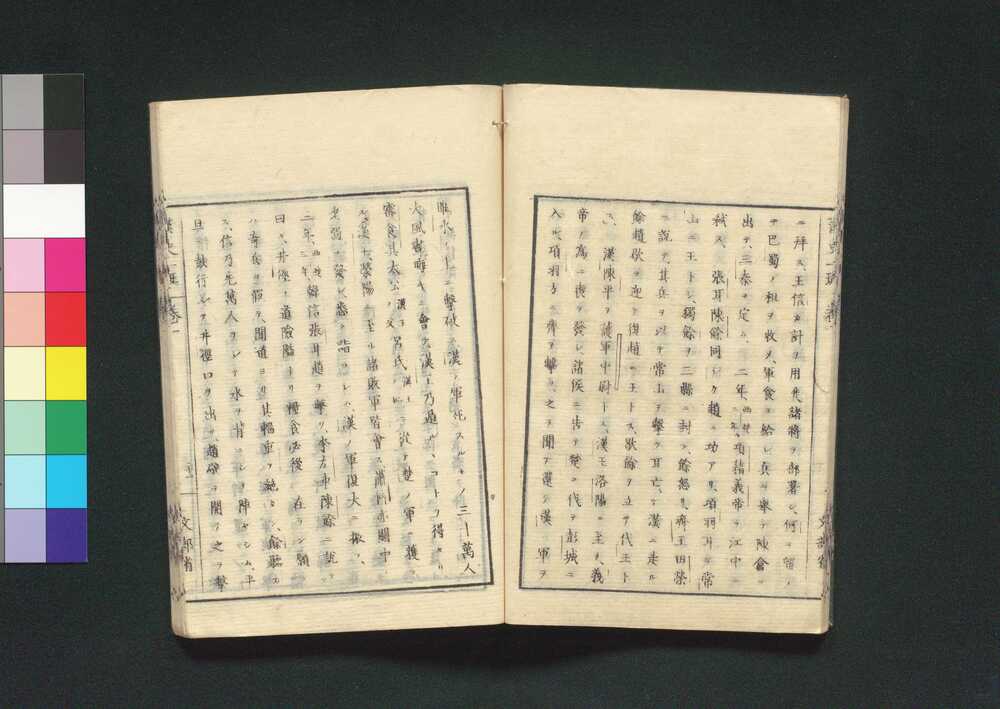 ニ拜ス、王信カ計ヲ用ヒ諸將ヲ部署シ、何ヲ留メ
テ巴蜀ノ租ヲ收メ、軍食ヲ給シ、兵ヲ擧テ陳倉ニ
出テ、三秦ヲ定ム、二年、項籍義帝ヲ江中ニ
弑ス、張耳陳餘同シク趙ニ功アリ、項羽耳ヲ常
山ニ王トシ、獨餘ヲ三縣ニ封ス、餘怒リ、齊王田榮
ニ說テ其兵ヲ以テ常山ヲ擊ツ、耳亡テ漢ニ走ル
餘趙歇ヲ迎テ復趙ニ王トス、歇餘ヲ立テ代王ト
ス、漢陳平ヲ護軍中尉トス、漢王洛陽ニ至リ、義
帝ノ爲ニ喪ヲ發シ、諸侯ニ告テ楚ヲ伐テ彭城ニ
入ル、項羽方ニ齊ヲ擊ツ、之ヲ聞テ還リ漢ノ軍ヲ
睢水ノ上ニ擊破ス、漢ノ軍死スルモノ三十萬人
大風 會 漢王乃遁ルヽコトヲ得タリ
審食其太公 呂氏 從テ楚ノ軍ニ獲
漢王滎陽ニ至ル、諸敗軍皆會ス、蕭何亦關中
老弱ヲ發シ悉ク詣ラシム、漢ノ軍復大ニ振フ、
三年、韓信張耳趙ヲ擊ツ、李左車陳餘ニ說テ
曰ク、井陘ノ道險隘ナリ、糧食必後ニ在ラン、願
ハ奇兵ヲ假セ、間道ヨリ其輜重ヲ絕タン、餘聽カ
ス、信乃先萬人ヲシテ水ヲ背ニシテ陣セシム、平
旦 鼓行シテ井陘口ヲ出ツ、趙壁ヲ開テ之ヲ擊
文部省